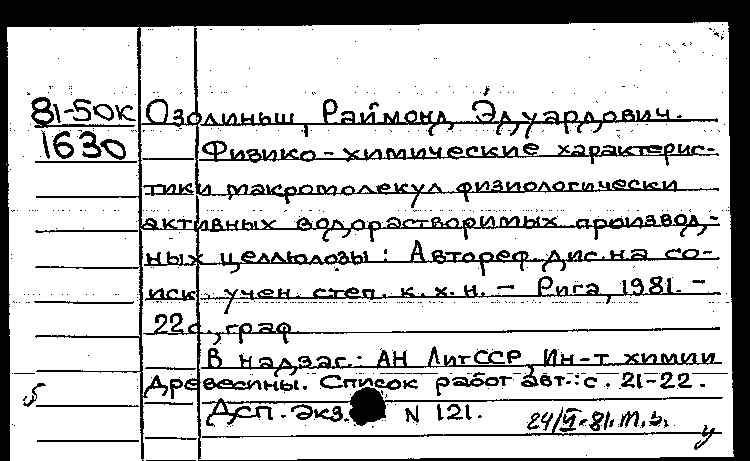 81-50к Озолиньш, Раймонд Эдуардович.
1630 Физико-химические характерис-
тики макромолекул физиологически
активных водорастворимых производ-
ных целлюлозы: Автореф. дис. на со-
иск. учен. степ. к. х. н. - Рига, 1981. -
22 с., граф.
В надзаг.: АН ЛитССР, Ин-т химии
древесины. Список работ авт.: с. 21-22.
Дсп. Экз. N 121.